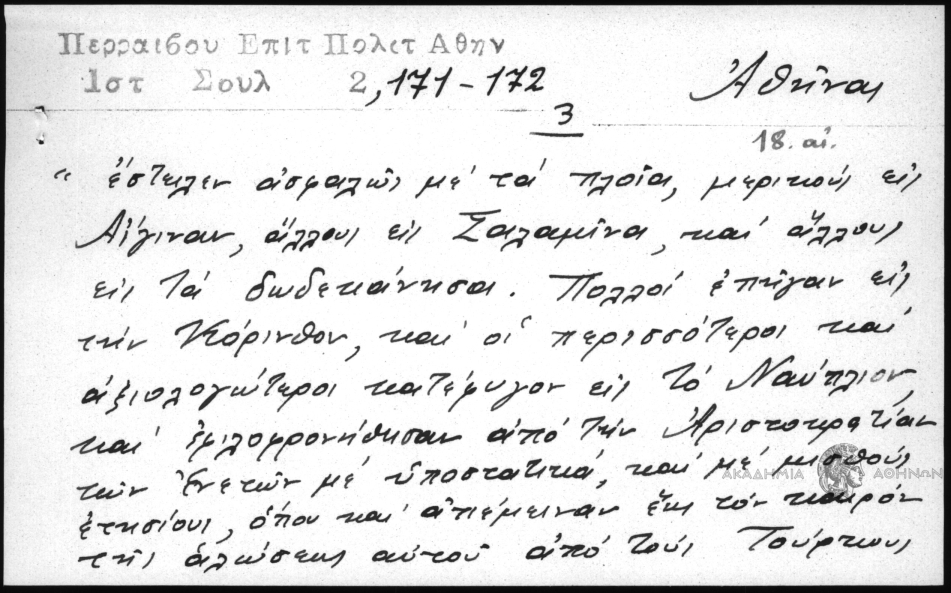 Περραιβου Επιτ Πολετ Αθην
1στ Σουλ 2, 171-172
Ἀθῆναι
3
18. αἰ.
" ἔστειλεν ἀσφαλῶς μέ τά πλοῖα, μερικούς εἰς
Αἴγιναν, ἄλλους εἰς Σαλαμῖνα, καί ἄλλους
εἰς τά δωδεκάνησα. Πολλοί ἐπῆγαν εἰς
τήν Κόρινθον, καί οἱ περισσότεροι καί
ἀξιολογώτεροι κατέφυγον εἰς τό Ναύπλιον,
καί ἐφιλοφρονήθησαν ἀπό τήν Ἀριστοκρατίαν
τῶν Ἐνετῶν μέ ὑποστατικά, καί μέ μισθούς
ΑΚΑΔΗΜΙΑ ΑΘΗΝΩΝ
ἐτησίους, ὁπου καί ἀπέμειναν ἕως τόν καιρόν
τῆς ἁλώσεως αὐτοῦ ἀπό τούς Τούρκους